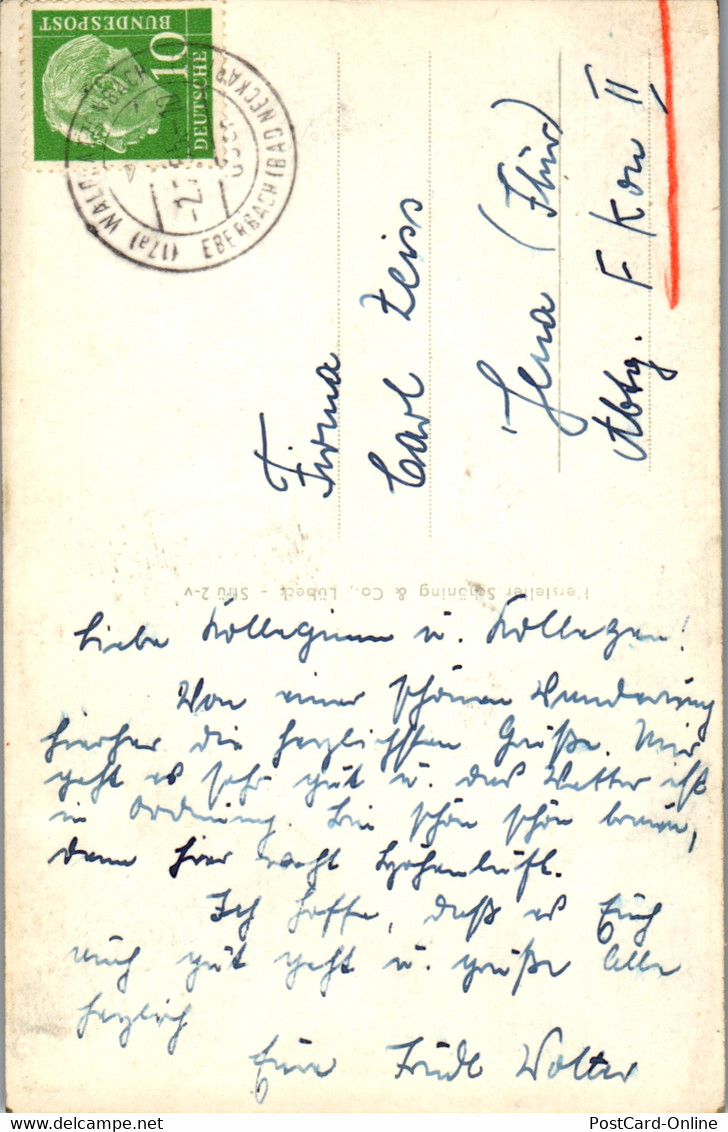 10
DEUTSCHE
BUNDESPOST
(17a) WALD
EBERBACH (BAD) NECKAR
Firma
Carl Zeiss
Jena (Thür)
Abtg. F Kon II
Hersteller Schöning & Co., Lübeck - Strü 2-v
Liebe Kolleginnen u. Kollegen!
Von einer schönen Wanderung
hierher die herzlichsten Grüße. Mir
geht es sehr gut u. das Wetter ist
in Ordnung. Bin schön schön braun,
denn hier weht Höhenluft.
Ich hoffe, daß es Euch
auch gut geht u. grüße Alle
herzlich
Eure Trudl Wolter
PostCard-Online